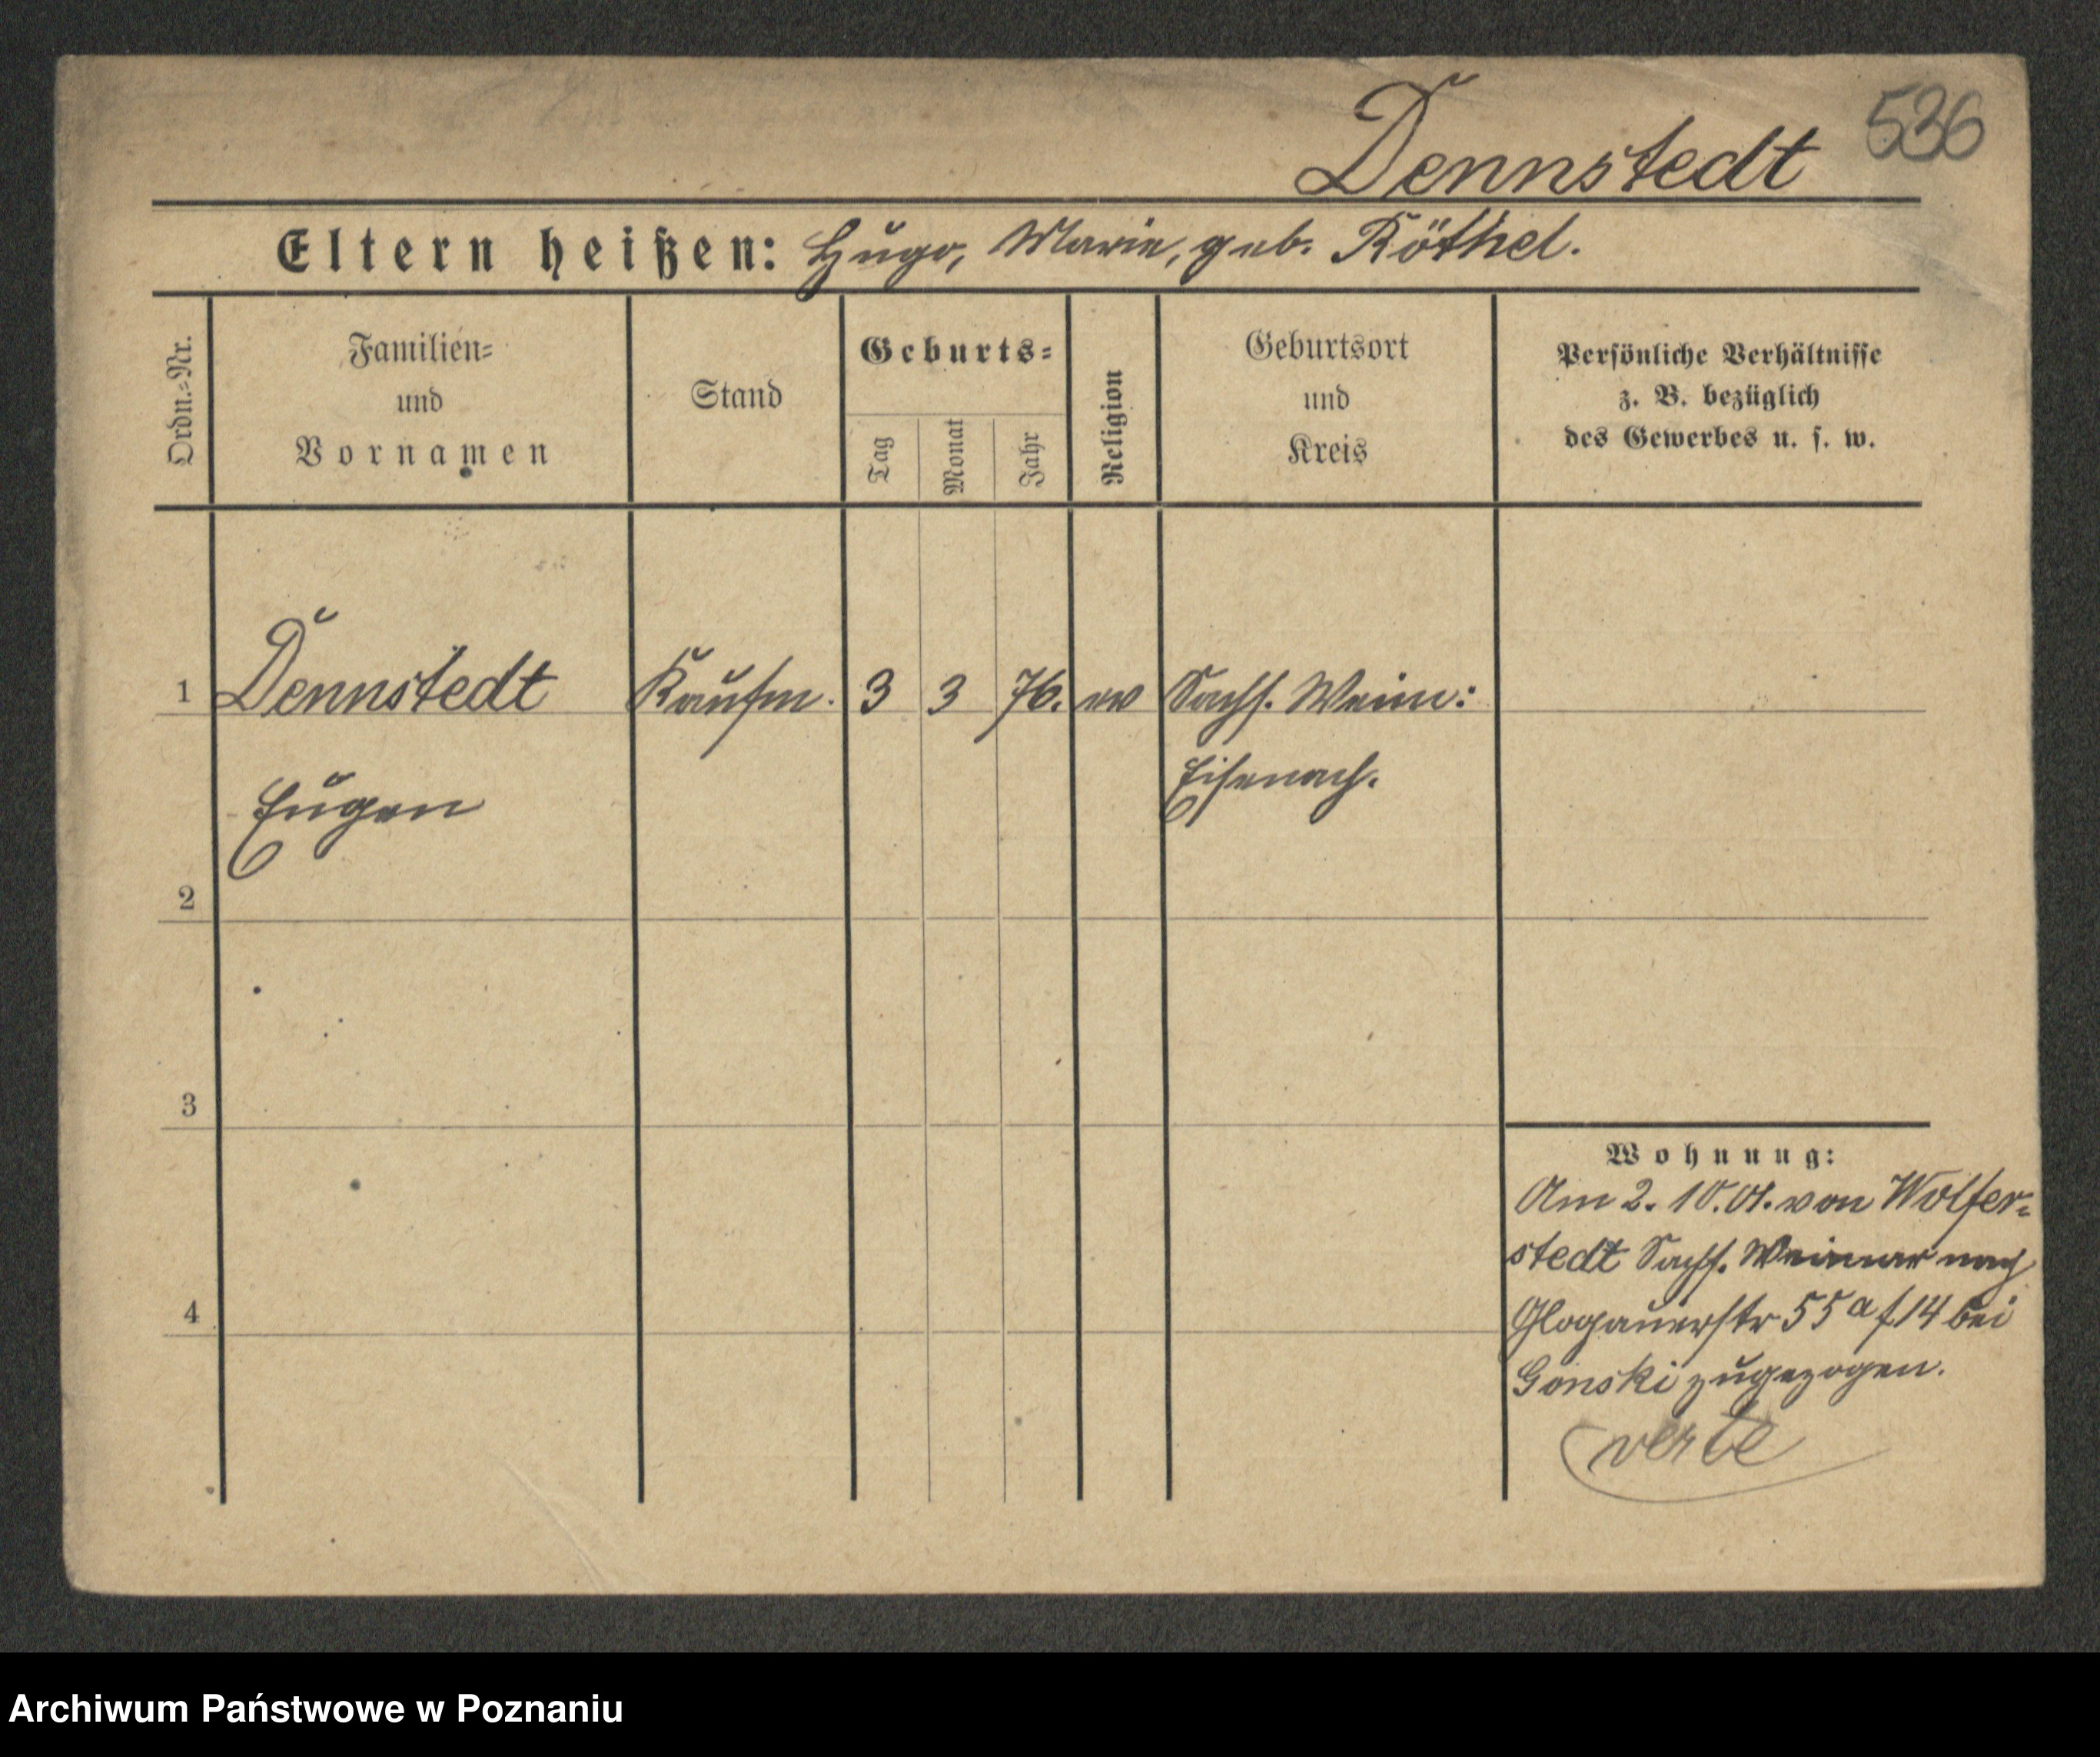 Dennstedt 536
Eltern heißen: Hugo, Marie, geb. Röthel.
Ordn.=Nr.
Familien=
und
Vornamen
Stand
Geburts=
Tag
Monat
Jahr
Religion
Geburtsort
und
Kreis
Persönliche Verhältnisse
z. B. bezüglich
des Gewerbes u. s. w.
1 Dennstedt Kaufm. 3 3 76. ev Sachs. Weim:
Eugen Eisenach.
2
3
Wohnung:
Am 2. 10. 01. von Wolfer=
stedt Sachs. Weimar nach
4
Glogauerstr 55a f. 14 bei
Gonski zugezogen.
verte
Archiwum Państwowe w Poznaniu